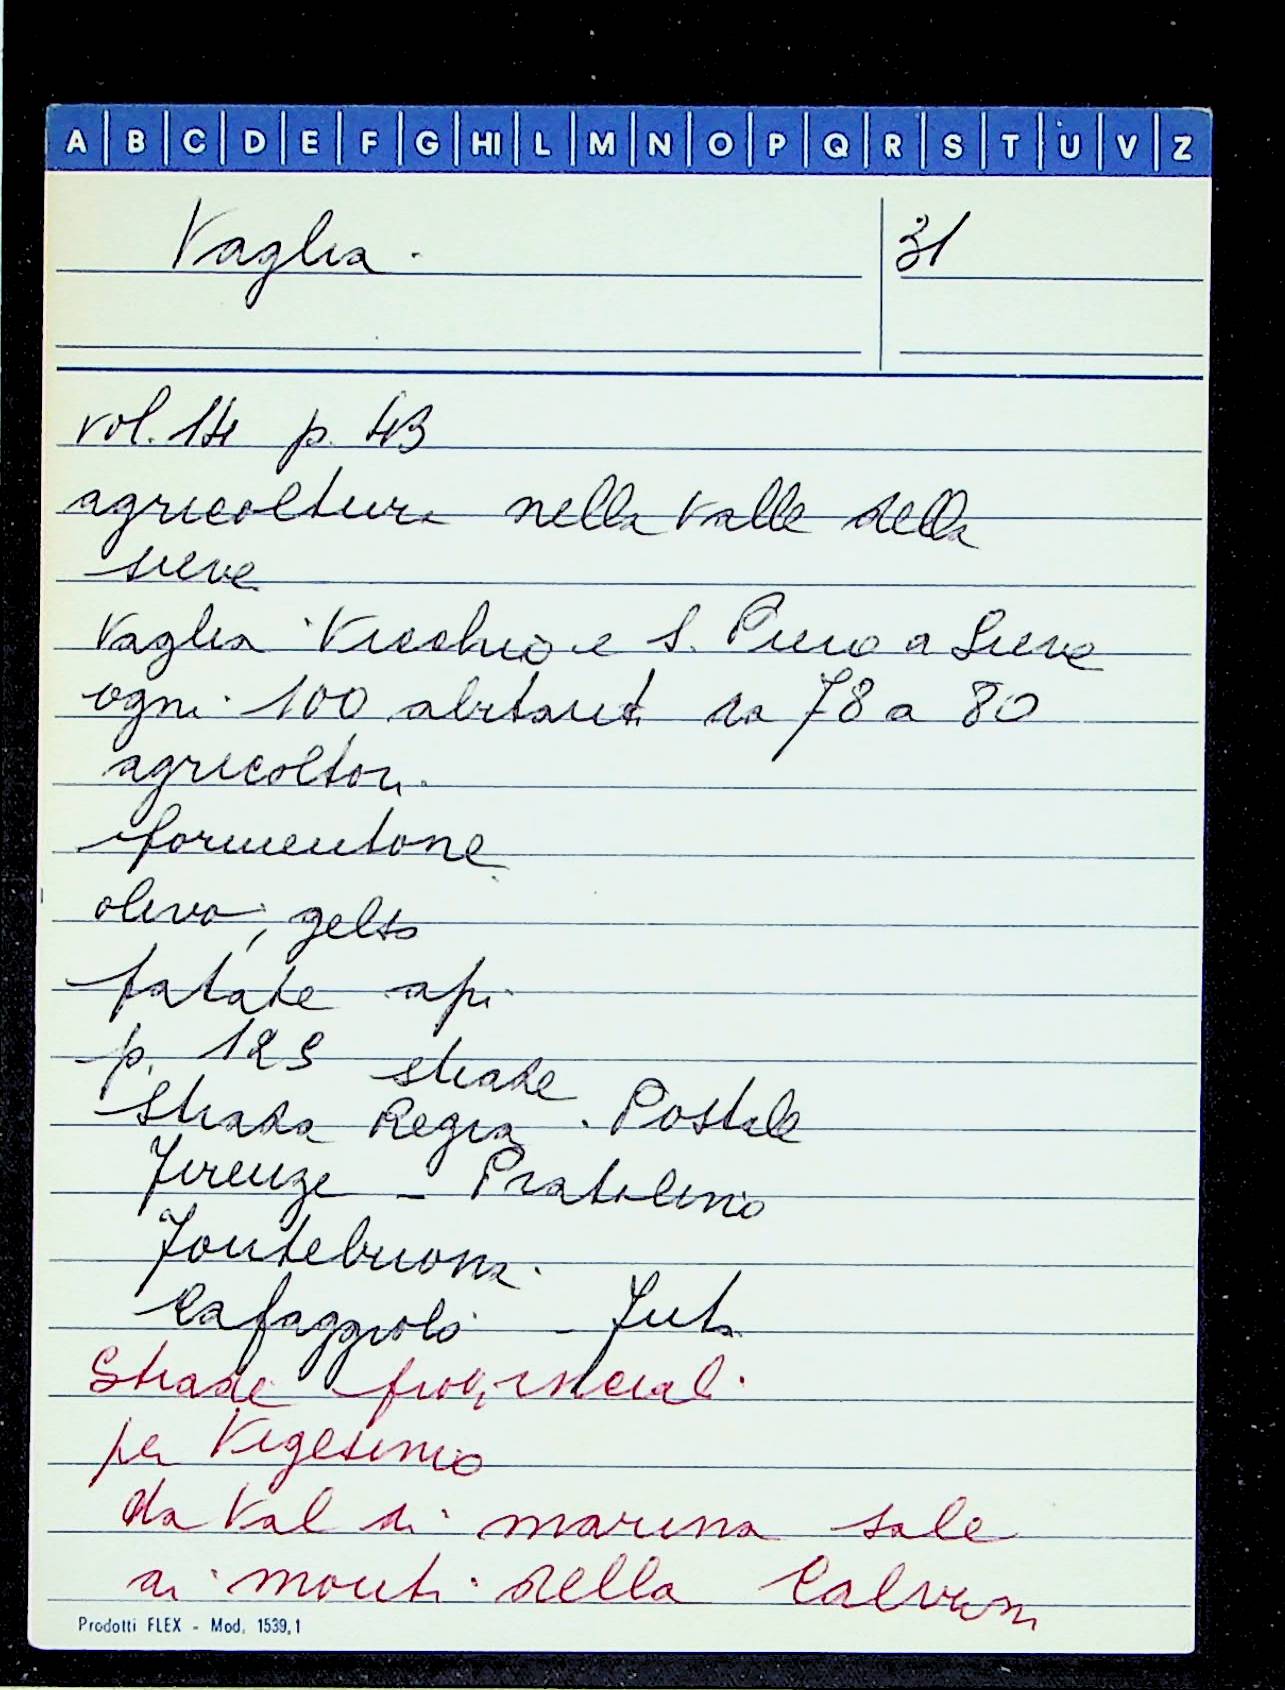 A B C D E F G HI L M N O P Q R S T U V Z
Vaglia. 31
vol. 14 p. 43
agricoltura nella valle della
sieve
Vaglia Vicchio e S. Piero a Sieve
ogni 100 abitanti da 78 a 80
agricoltori
formentone
olivo, gelso
patate api
p. 129 strade
Strada Regia Postale
Firenze - Pratolino
Fontebuona
Cafaggiolo - Futa
Strade provinciali
per Vigesimo
da Val di marina sale
ai monti della Calvana
Prodotti FLEX - Mod. 1539,1